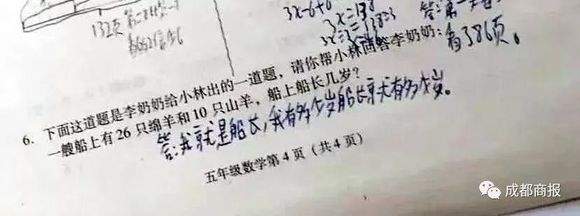 132页
3x-6+6
3x=138
答:第一
看386页。
6. 下面这道题是李奶奶给小林出的一道题，请你帮小林回答李奶奶：
一艘船上有26只绵羊和10只山羊，船上船长几岁？
答:我就是船长,我有多少岁船长就有多少岁。
五年级数学第4页（共4页）
成都商报